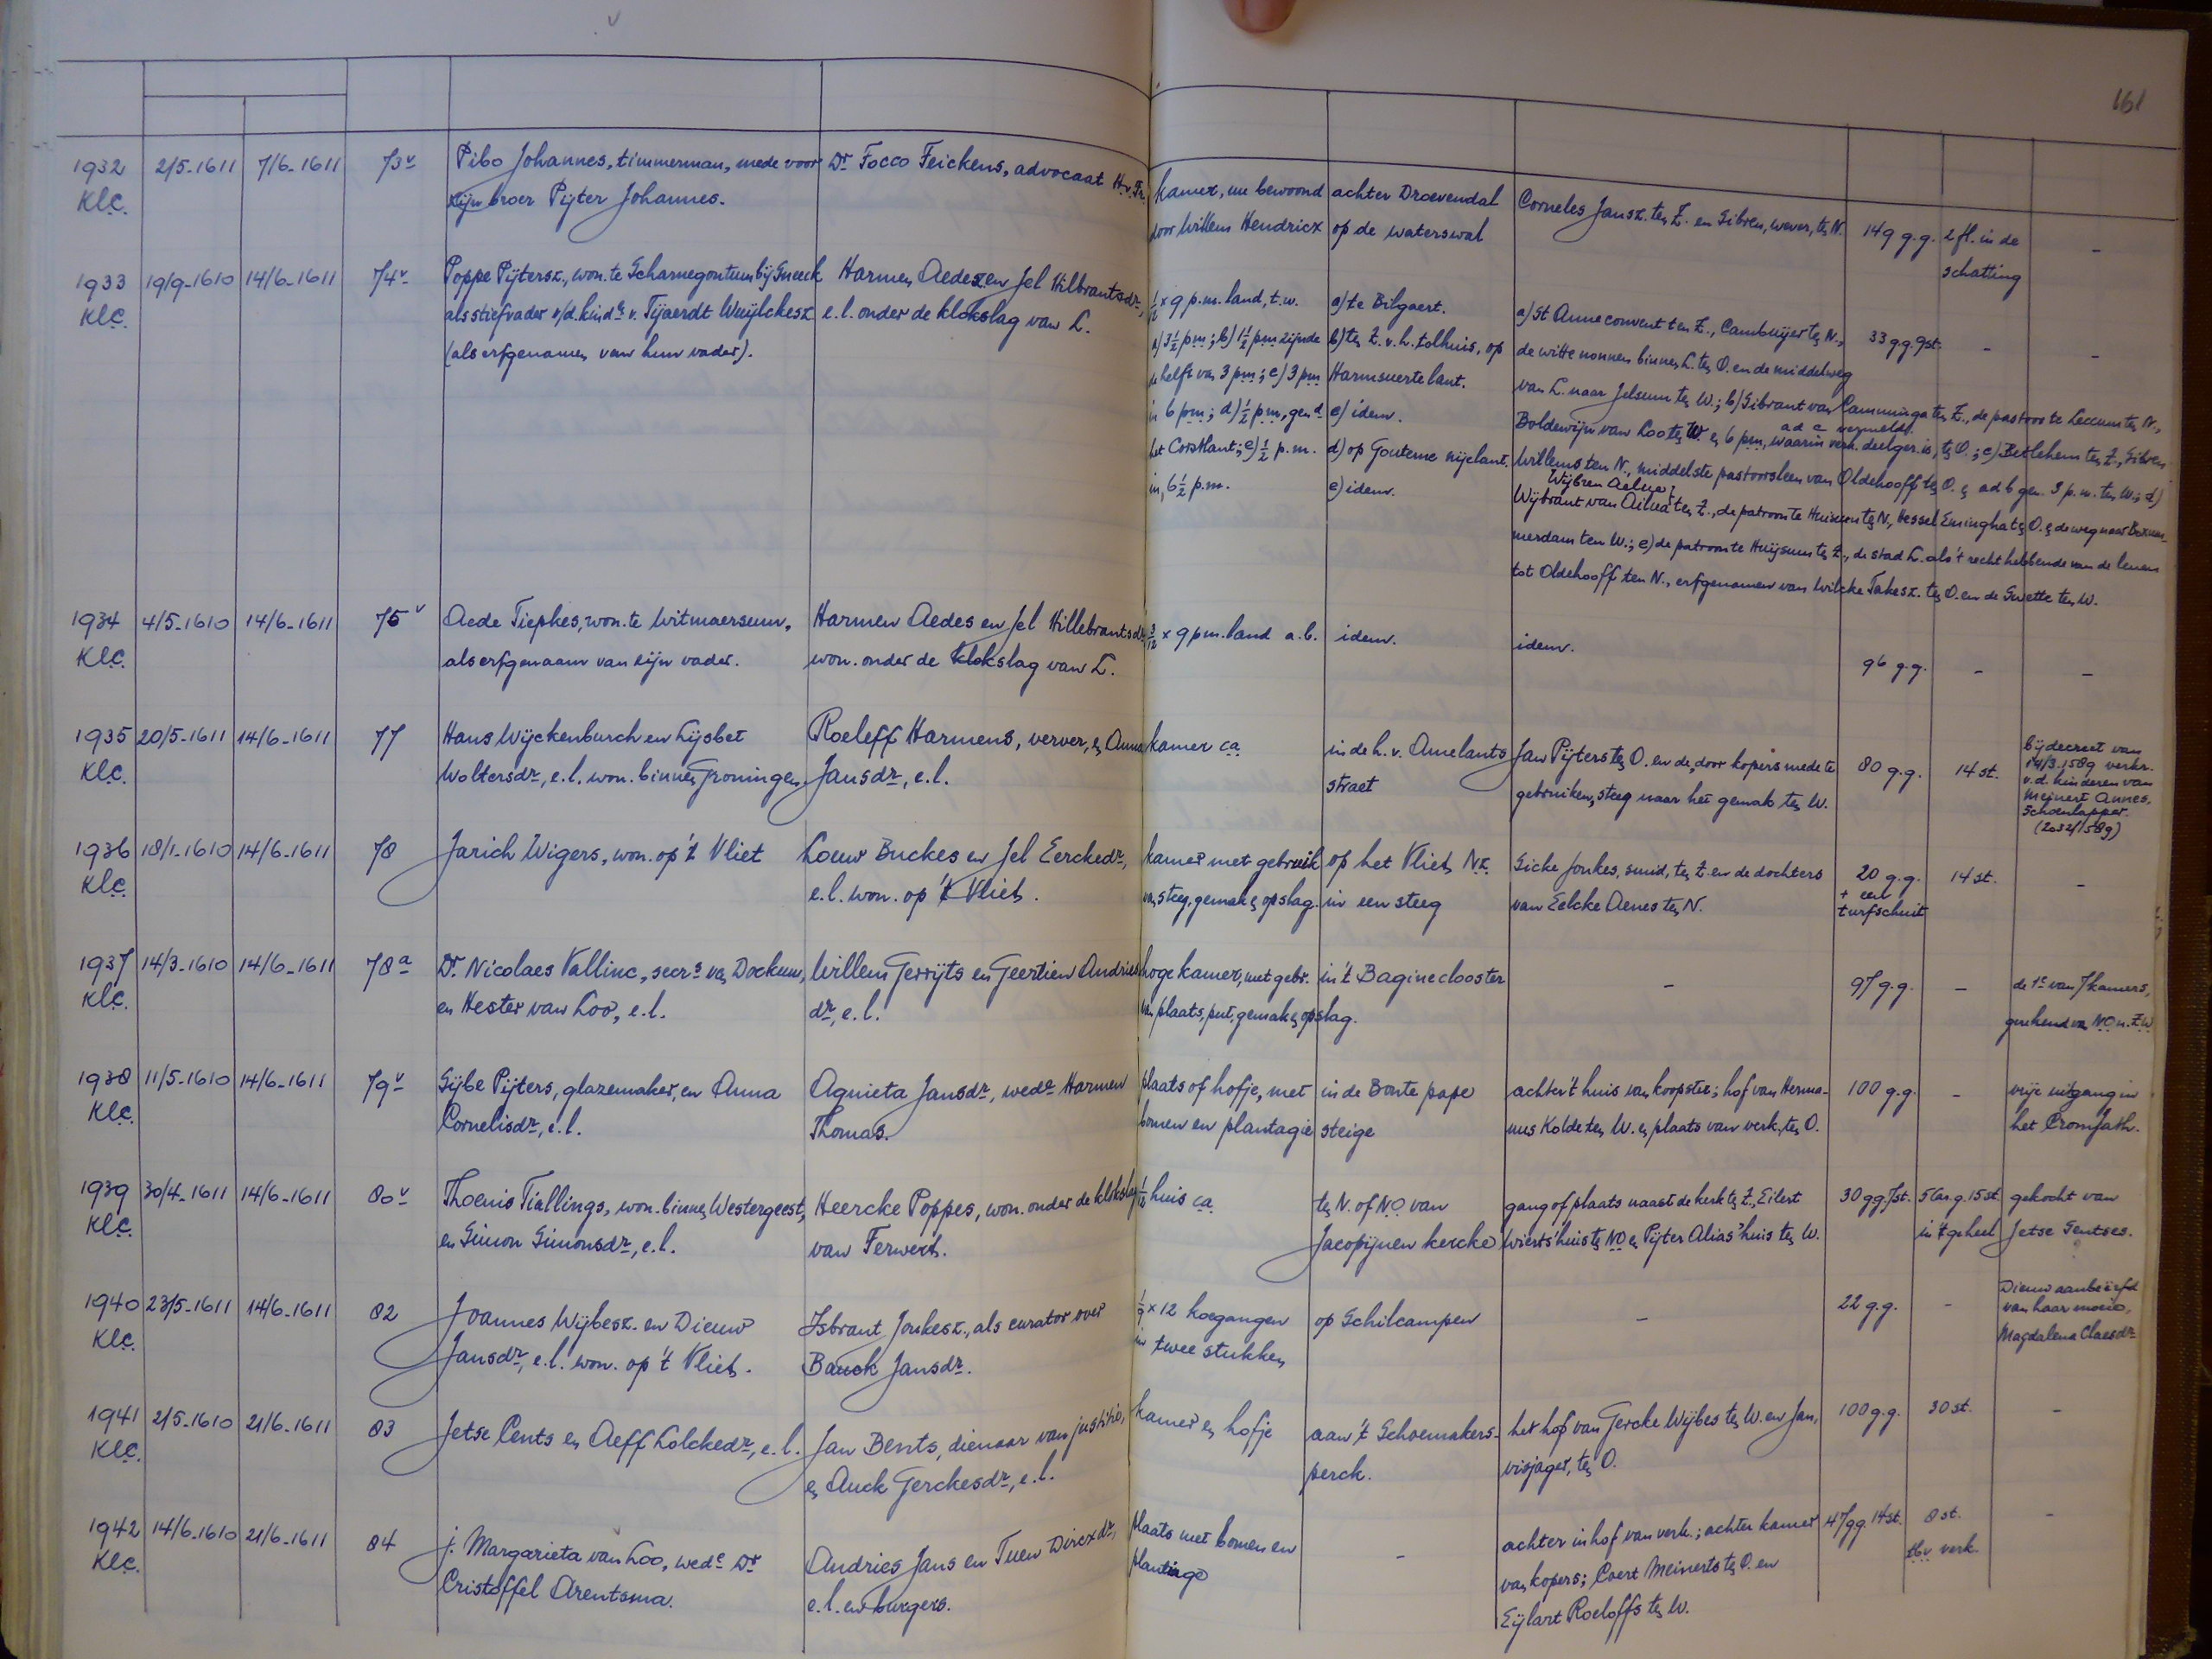 161
1932 2/5-1611 7/6-1611 73v Pibo Johannes, timmerman, mede voor Dr Focco Feickens, advocaat H.v.Fr. kamer, nu bewoond achter Droevendal Corneles Jansz. ten Z. en Sibren, wever, ten N. 149 g.g. 2 fl. in de -
klc. zijn broer Pijter Johannes. door Willem Hendricx op de waterswal schatting
1933 19/9-1610 14/6-1611 74v Poppe Pijtersz., won. te Scharnegoutum bij Sneeck Harmen Aedesz en Jel Hilbrantsdr, 1/2 x 9 p.m. land, t.w. a) te Bilgaert. a) St Anneconvent ten Z., Cambuijer ten N., 33 g.g. 9st. - -
klc. als stiefvader v/d. kindn v. Tjaerdt Wuijlckesz e.l. onder de klokslag van L. a) 3 1/2 pm; b) 1 1/2 pm zijnde b) ten Z. v. h. tolhuis, op de witte nonnen binnen L. ten O. en de middelweg
(als erfgenamen van hun vader). de helft van 3 pm; c) 3 pm Harmsuerte lant. van L. naar Jelsum ten W.; b) Sibrant van Camminga ten Z., de pastoor te Leccum ten N.,
in 6 pm; d) 1/2 pm, gend c) idem. Boldewijn van Loo ten W. en 6 pm, waarin ad c vermeldt. verk. deelger. is, ten O.; c) Bethlehem ten Z., Sibren
het Corstlant; e) 1/2 p.m. d) op Gouteme nijelant. Willems ten N., middelste pastoorsleen van Oldehooff ten O. en ad b gen. 3 p.m. ten W.; d)
in 6 1/2 p.m. e) idem. Wijbren Aelua
Wijbrant van Ailua ten Z., de patroon te Huisum ten N., Hessel Eminghat ten O. en de weg naar Boxum-
merdam ten W.; e) de patroon te Huijsum ten Z., de stad L. als 't recht hebbende van de lenen
tot Oldehooff ten N., erfgenamen van Wilcke Takesz. ten O. en de Swette ten W.
1934 4/5-1610 14/6-1611 75v Aede Tiepkes, won. te Witmaersum, Harmen Aedes en Jel Hillebrantsdr, 3/12 x 9 pm. land a.b. idem. idem. 96 g.g. - -
klc. als erfgenaam van zijn vader. won. onder de klokslag van L.
1935 20/5-1611 14/6-1611 77 Hans Wyckenburch en Lijsbet Roeleff Harmens, verver, en Anna kamer ca. in de h. v. Amelants Jan Pijters ten O. en de, door kopers mede te 80 g.g. 14 st. bij decreet van
klc. Woltersdr, e.l. won. binnen Groningen Jansdr, e.l. straet gebruiken, steeg naar het gemak ten W. 14/3.1589 verkr.
v.d. kinderen van
Meinert Annes,
schoenlapper.
(2032/1589)
1936 18/1-1610 14/6-1611 78 Jarich Wigers, won. op 't Vliet Louw Buckes en Jel Eerckedr, kamer met gebruik op het Vliet Nz. Sicke Jonkes, smid, ten Z. en de dochters 20 g.g. 14 st. -
klc. e.l. won. op 't Vliet. van steeg, gemak en opslag. in een steeg van Eelcke Aenes ten N. + een
turfschuit
1937 14/3-1610 14/6-1611 78a Dr Nicolaes Vallinc, secrs van Dockum, Willem Gerrijts en Geertien Andries hoge kamer, met gebr. in 't Bagineclooster - 97 g.g. - de 1e van 7 kamers,
klc. en Hester van Loo, e.l. dr, e.l. van plaats, put, gemak en opslag. gerekend van NO n. ZW
1938 11/5-1610 14/6-1611 79v Sijbe Pijters, glazemaker, en Anna Agnieta Jansdr, wede Harmen plaats of hofje, met in de Bonte pape achter 't huis van koopster; hof van Herma- 100 g.g. - vrije uitgang in
klc. Cornelisdr, e.l. Thomas. bomen en plantagie steige nus Kolde ten W. en plaats van verk. ten O. het Cromjath.
1939 30/4-1611 14/6-1611 80v Thoenis Tiallings, won. binnen Westergeest, Heercke Poppes, won. onder de klokslag 1/12 huis ca. ten N. of NO van gang of plaats naast de kerk ten Z., Eilert 30 gg. 7st. 5 Car. g. 15 st. gekocht van
klc. en Simon Simonsdr, e.l. van Ferwert. Jacopijnen kercke Wierts' huis ten NO en Pijter Alias' huis ten W. in 't geheel Jetse Sentses.
1940 23/5-1611 14/6-1611 82 Joannes Wijbesz. en Dieuw Isbrant Jonkesz., als curator over 1/9 x 12 koegangen op Schilcampen - 22 g.g. - Dieuw aanbeërfd
klc. Jansdr, e.l. won. op 't Vliet. Bauck Jansdr. in twee stukken van haar moeie,
Magdalena Claesdr
1941 2/5-1610 21/6-1611 83 Jetse Cents en Aeff Lolckedr, e.l. Jan Bents, dienaar van justitie, kamer en hofje aan 't Schoemakers- het hof van Gercke Wijbes ten W. en Jan, 100 g.g. 30 st. -
klc. en Auck Gerckesdr, e.l. perck. visjager, ten O.
1942 14/6-1610 21/6-1611 84 j. Margarieta van Loo, wede Dr Andries Jans en Tuen Dircxdr, plaats met bomen en - achter in hof van verk.; achter kamer 47 gg. 14 st. 8 st. -
klc. Cristoffel Arentsma. e.l. en burgers. plantage van kopers; Coert Meinerts ten O. en tbv verk.
Eijlart Roeloffs ten W.